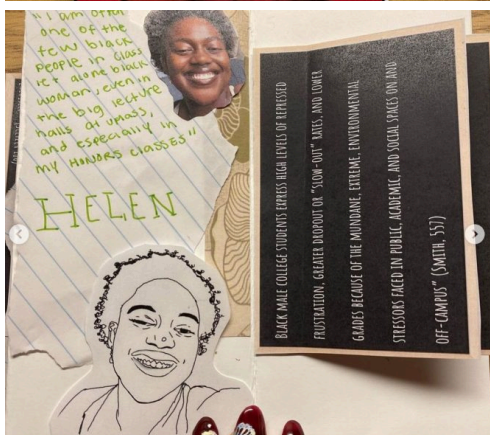 "I am often
one of the
few black
people in class
let alone black
woman, even in
the big lecture
halls at umass,
and especially in
my HONORS classes"
HELEN
BLACK MALE COLLEGE STUDENTS EXPRESS HIGH LEVELS OF REPRESSED
FRUSTRATION, GREATER DROPOUT OR "SLOW-OUT" RATES, AND LOWER
GRADES BECAUSE OF THE MUNDANE, EXTREME, ENVIRONMENTAL
STRESSORS FACED IN PUBLIC, ACADEMIC, AND SOCIAL SPACES ON AND
OFF-CAMPUS" (SMITH, 557)